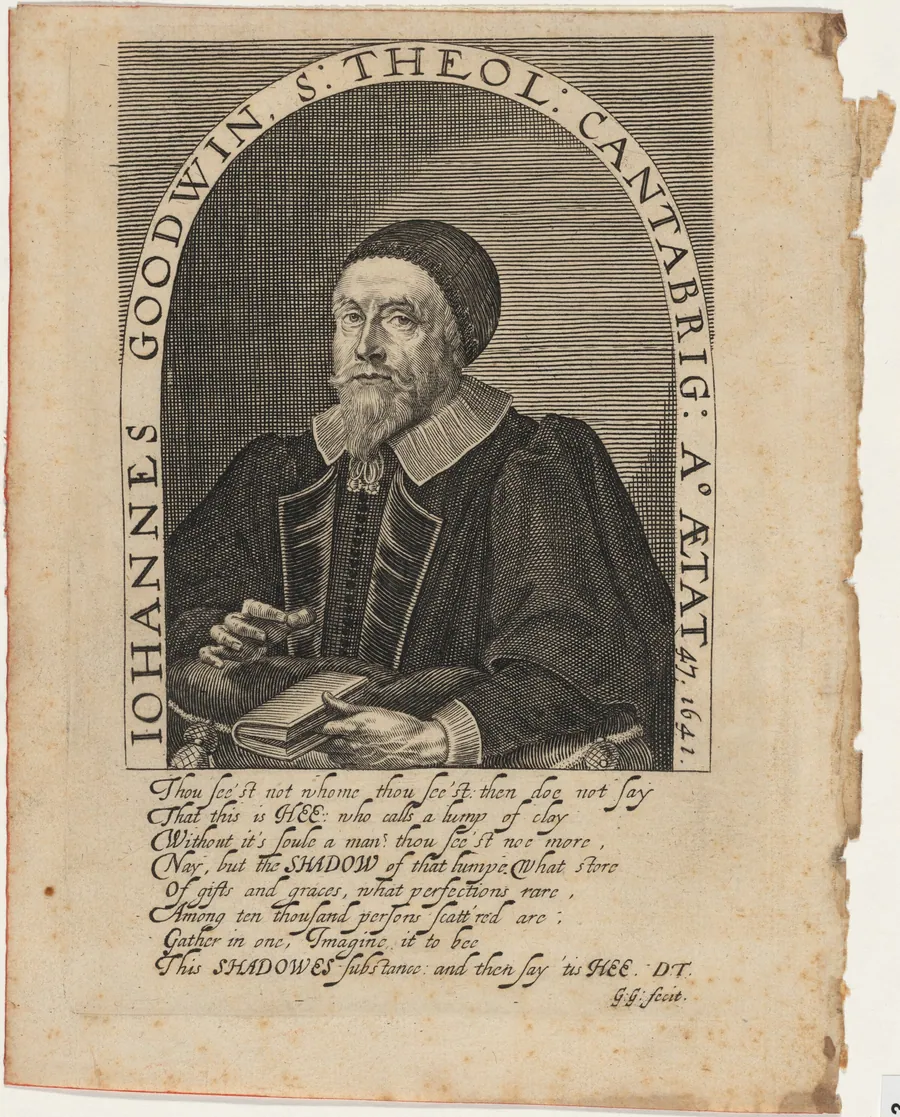 IOHANNES GOODWIN, S: THEOL: CANTABRIG: Aº ÆTAT 47. 1641.
Thou see'st not whome thou see'st: then doe not say
That this is HEE: who calls a lump of clay
Without it's soule a man? thou see'st noe more,
Nay, but the SHADOW of that lumpe. What store
Of gifts and graces, what perfections rare,
Among ten thousand persons scatt'red are;
Gather in one, Imagine it to bee
This SHADOWES substance: and then say 'tis HEE. D.T.
G:G: fecit.